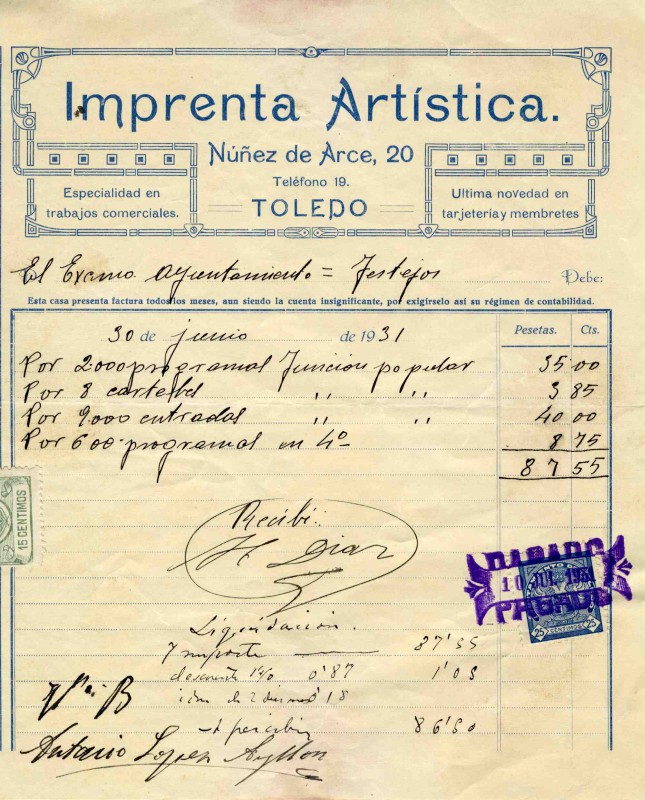 Imprenta Artística.
Núñez de Arce, 20
Teléfono 19.
TOLEDO
Especialidad en
trabajos comerciales.
Ultima novedad en
tarjetería y membretes
El Excmo. Ayuntamiento = Festejos Debe:
Esta casa presenta factura todos los meses, aun siendo la cuenta insignificante, por exigírselo así su régimen de contabilidad.
30 de junio de 1931 Pesetas. Cts.
Por 2000 programas Función popular 35 00
Por 8 carteles " " 3 85
Por 9.000 entradas " " 40 00
Por 600 programas en 4º 8 75
87 55
15 CENTIMOS
Recibí:
Diaz
PAGADO
10 JUL 193
PAGADO
25 CENTIMOS 25
Liquidación.
Importe 87'55
descuento 1% 0'87 1'05
idm de 0'18
A percibir 86'50
Antonio Lopez Ayllon